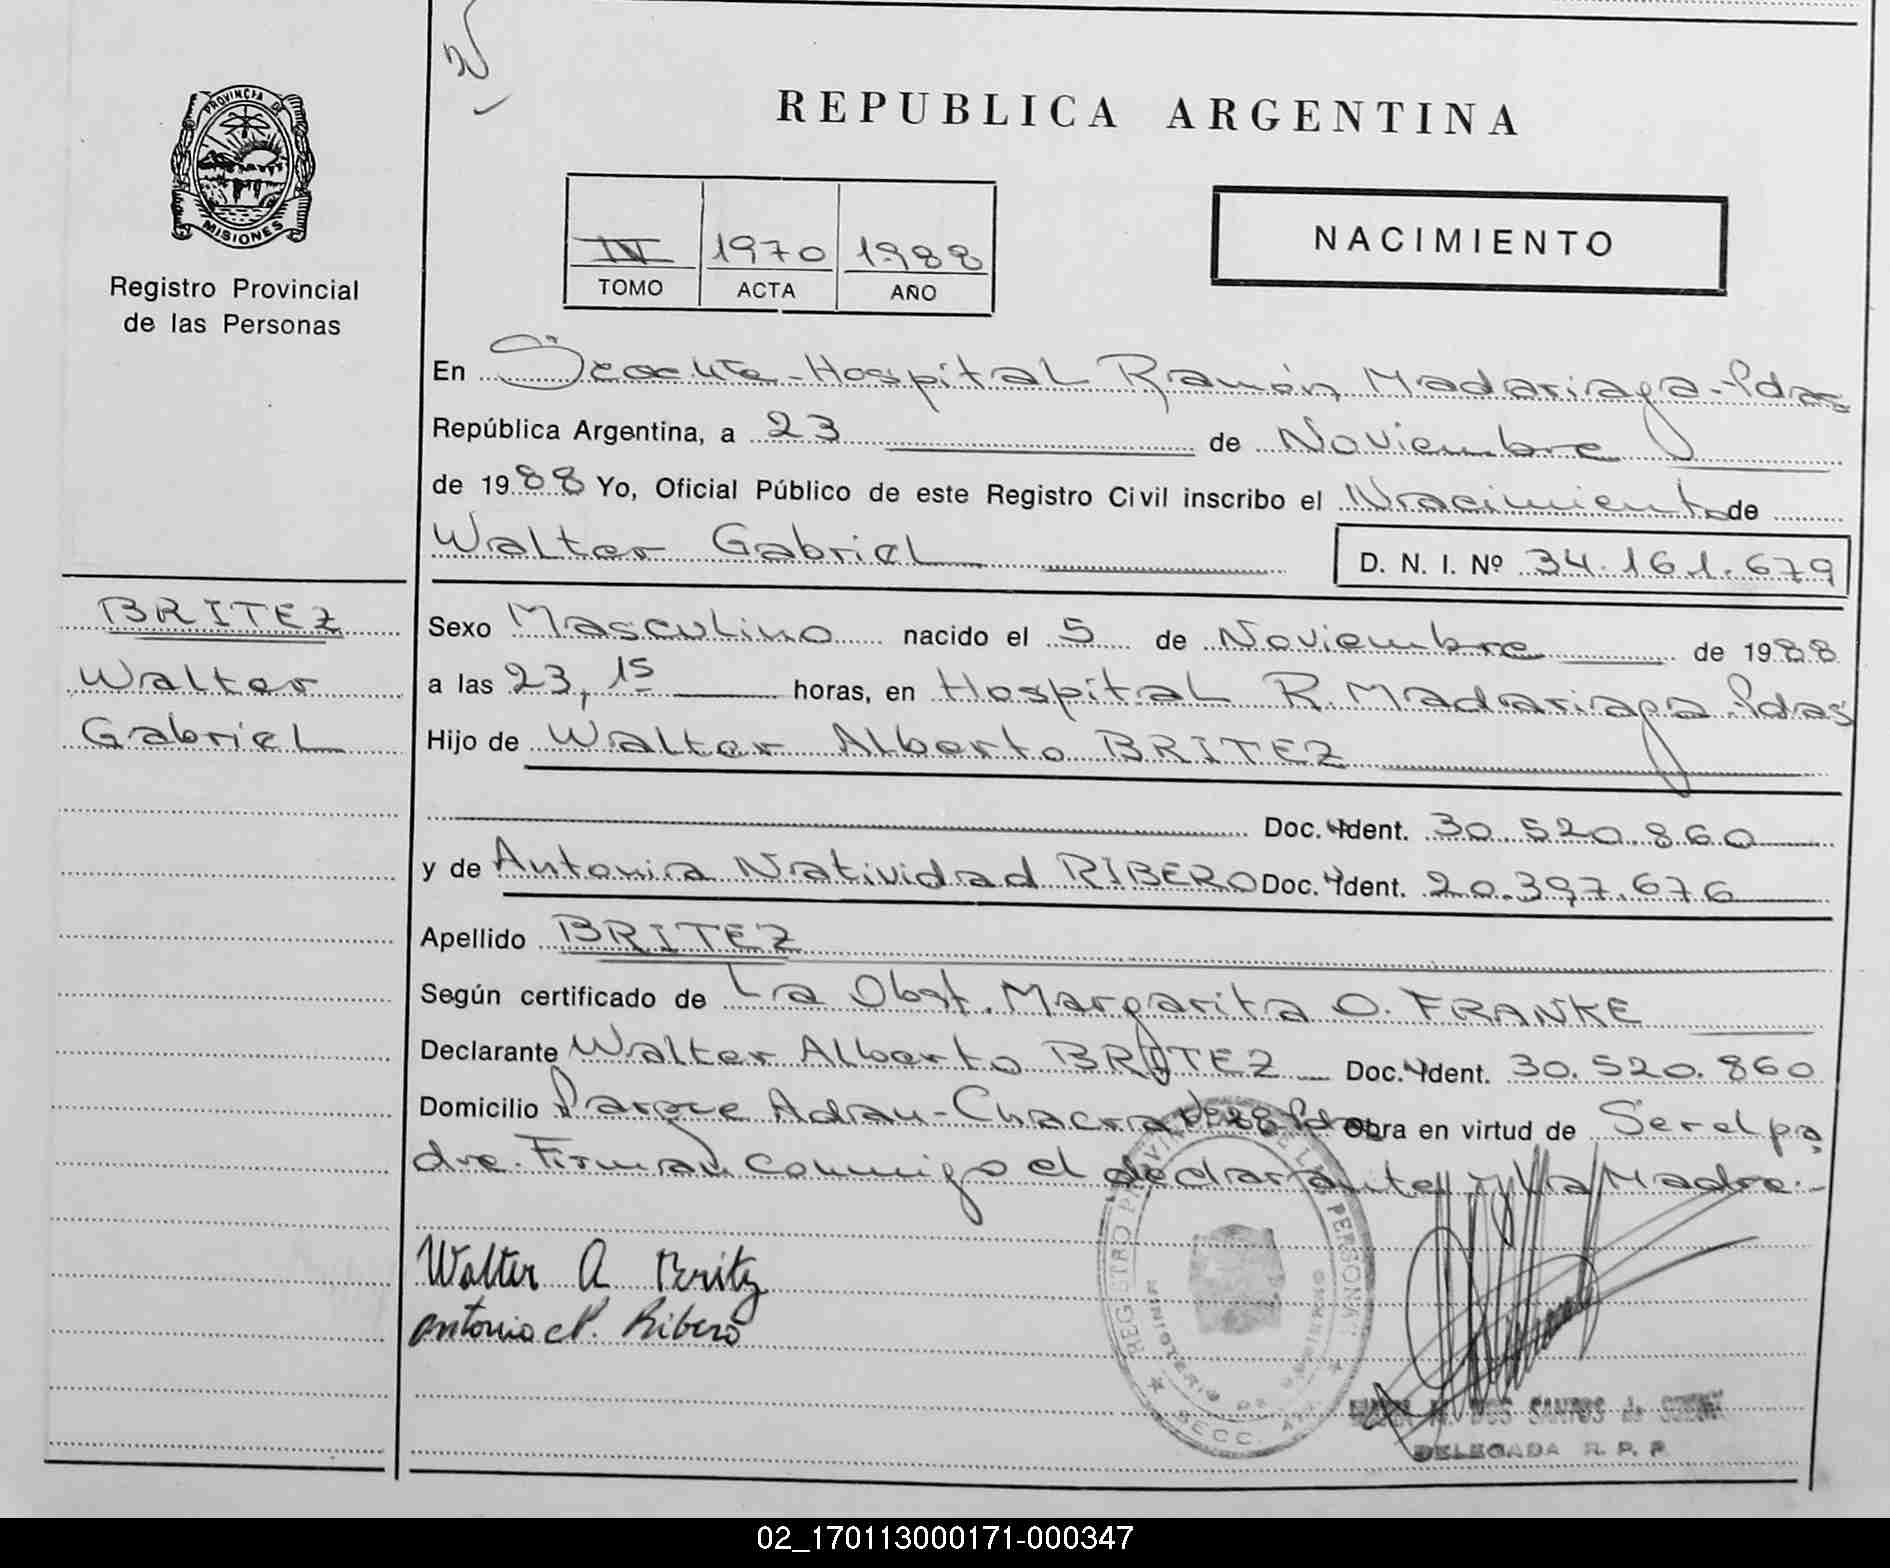 REPUBLICA ARGENTINA
PROVINCIA DE
MISIONES
Registro Provincial
de las Personas
IV 1970 1988
TOMO ACTA AÑO
NACIMIENTO
En Hospital Ramón Madariaga-Pdas
República Argentina, a 23 de Noviembre
de 1988 Yo, Oficial Público de este Registro Civil inscribo el Nacimiento de
Walter Gabriel D. N. I. Nº 34.161.679
BRITEZ
Walter
Gabriel
Sexo Masculino nacido el 5 de Noviembre de 1988
a las 23,15 horas, en Hospital R. Madariaga-Pdas
Hijo de Walter Alberto BRITEZ
Doc. Ident. 30.520.860
y de Antonia Natividad RIBERO Doc. Ident. 20.397.676
Apellido BRITEZ
Según certificado de La Obst. Margarita O. FRANKE
Declarante Walter Alberto BRITEZ Doc. Ident. 30.520.860
Domicilio Parque Adam-Chacra Pdas Obra en virtud de Ser el pa
dre. Firman conmigo el declarante y la Madre.-
Walter A Britez
Antonia N. Ribero
REGISTRO PROVINCIAL DE LAS PERSONAS
MINISTERIO DE GOBIERNO
SECC.
DOS SANTOS de
DELEGADA R. P. P.
02_170113000171-000347